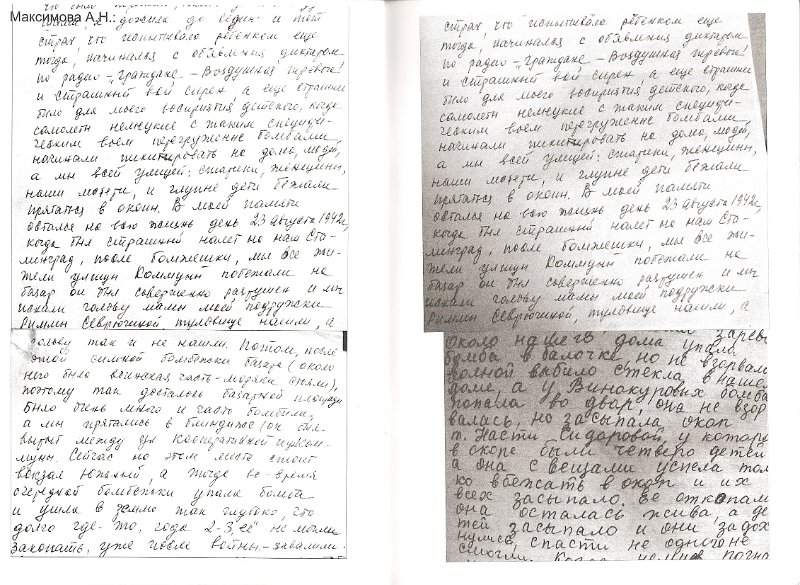 Максимова А.Н.:
страх, что испытывало ребенком еще
тогда, начинался с объявления диктором
по радио - „Граждане - Воздушная тревога!
и страшный вой сирен, а еще страшней
было для моего восприятия детского, когда
самолеты немецкие с таким специфи-
ческим воем перегруженные бомбами,
начинали пикитировать на дома, людей,
а мы всей улицей: старики, женщины,
наши матери, и глупые дети бежали
прятаться в окопы. В моей памяти
остался на всю жизнь день 23 августа 1942г,
когда был страшный налет на наш Ста-
линград, после бомбежки, мы все жи-
тели улицы Коммуны побежали на
базар он был совершенно разрушен и мы
искали голову мамы моей подружки
Риммы Севрюгиной, туловище нашли, а
голову так и не нашли. Потом, после
этой сильной бомбежки базара (около
него была воинская часть - моряки стояли),
поэтому так досталось базарной площади
было очень много и часто бомбили,
а мы прятались в блиндаже (он был
вырыт между ул Кооперативной и ул Ком-
муны. Сейчас на этом месте стоит
вокзал Южный, а тогда во-время
очередной бомбежки упала бомба
и ушла в землю так глубоко, что
долго где-то, года 2-3, её не могли
закопать, уже после войны - завалили.
страх, что испытывало ребенком еще
тогда, начинался с объявления диктором
по радио - „Граждане - Воздушная тревога!
и страшный вой сирен, а еще страшней
было для моего восприятия детского, когда
самолеты немецкие с таким специфи-
ческим воем перегруженные бомбами,
начинали пикитировать на дома, людей,
а мы всей улицей: старики, женщины,
наши матери, и глупые дети бежали
прятаться в окопы. В моей памяти
остался на всю жизнь день 23 августа 1942г,
когда был страшный налет на наш Ста-
линград, после бомбежки, мы все жи-
тели улицы Коммуны побежали на
базар он был совершенно разрушен и мы
искали голову мамы моей подружки
Риммы Севрюгиной, туловище нашли, а
около нашего дома упала
бомба в балочке, но не взорвал
волной выбило стекла в наше
доме, а у Винокуровых бомба
попала во двор, она не взор
валась, но засыпала окоп
т. Насти Сидоровой, у котор
в окопе были четверо детей
а она с вещами успела тол
ко вбежать в окоп и их
всех засыпало. Ее откопал
она осталась жива, а де
тей засыпало и они задох
нулись, спасти не одного не
смогли.